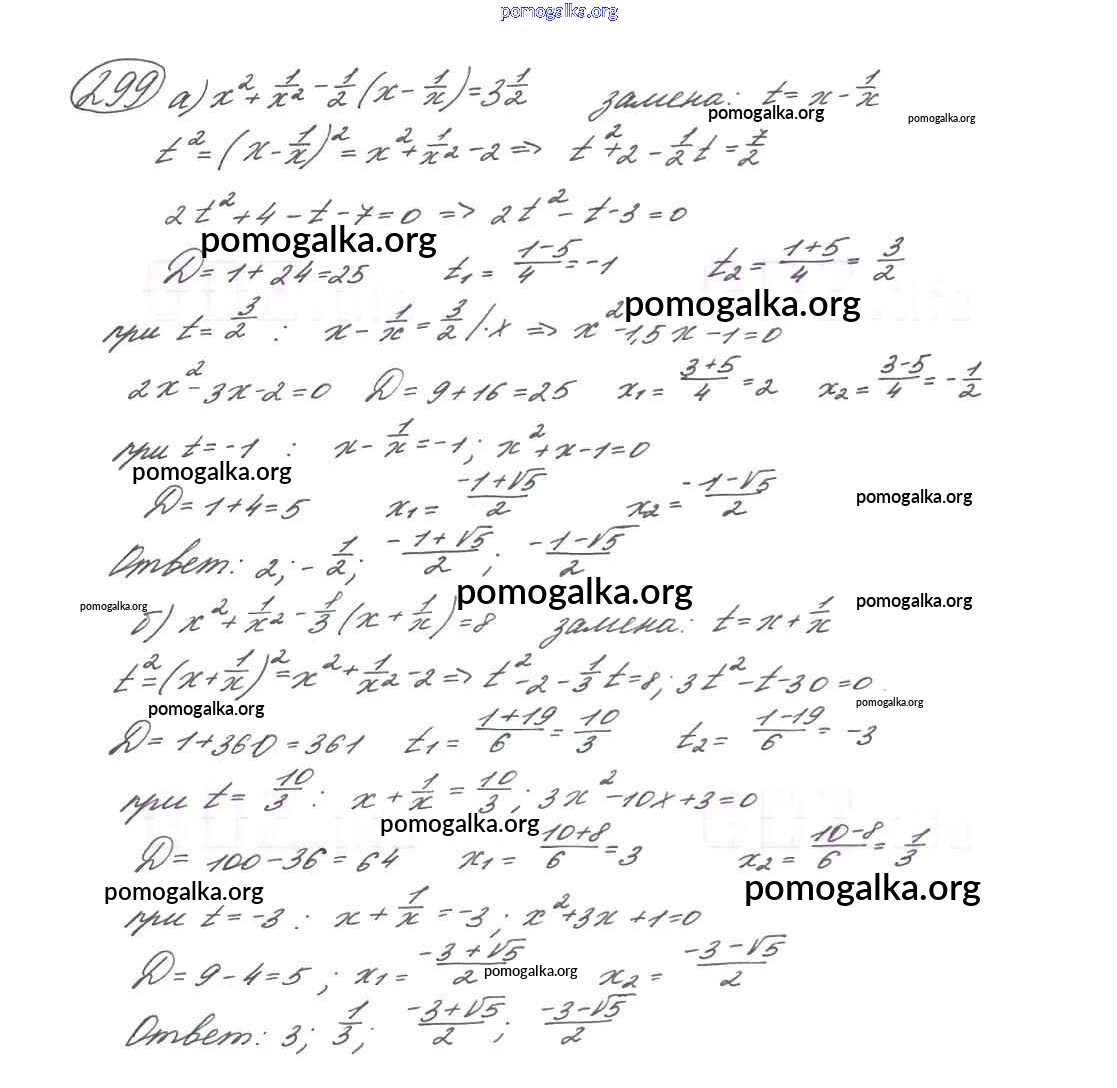 pomogalka.org
299 а) x² + 1/x² - 1/2 (x - 1/x) = 3 1/2 замена: t = x - 1/x
pomogalka.org pomogalka.org
t² = (x - 1/x)² = x² + 1/x² - 2 => t² + 2 - 1/2 t = 7/2
2t² + 4 - t - 7 = 0 => 2t² - t - 3 = 0
pomogalka.org
D = 1 + 24 = 25 t₁ = (1-5)/4 = -1 t₂ = (1+5)/4 = 3/2
pomogalka.org
при t = 3/2 : x - 1/x = 3/2 /·x => x² - 1,5x - 1 = 0
2x² - 3x - 2 = 0 D = 9 + 16 = 25 x₁ = (3+5)/4 = 2 x₂ = (3-5)/4 = -1/2
при t = -1 : x - 1/x = -1; x² + x - 1 = 0
pomogalka.org
D = 1 + 4 = 5 x₁ = (-1+√5)/2 x₂ = (-1-√5)/2
pomogalka.org
Ответ: 2; -1/2; (-1+√5)/2; (-1-√5)/2
pomogalka.org pomogalka.org pomogalka.org
б) x² + 1/x² - 1/3 (x + 1/x) = 8 замена: t = x + 1/x
t² = (x + 1/x)² = x² + 1/x² - 2 => t² - 2 - 1/3 t = 8; 3t² - t - 30 = 0
pomogalka.org pomogalka.org
D = 1 + 360 = 361 t₁ = (1+19)/6 = 10/3 t₂ = (1-19)/6 = -3
при t = 10/3 : x + 1/x = 10/3; 3x² - 10x + 3 = 0
pomogalka.org
D = 100 - 36 = 64 x₁ = (10+8)/6 = 3 x₂ = (10-8)/6 = 1/3
pomogalka.org pomogalka.org
при t = -3 : x + 1/x = -3; x² + 3x + 1 = 0
D = 9 - 4 = 5; x₁ = (-3+√5)/2 x₂ = (-3-√5)/2
pomogalka.org
Ответ: 3; 1/3; (-3+√5)/2; (-3-√5)/2